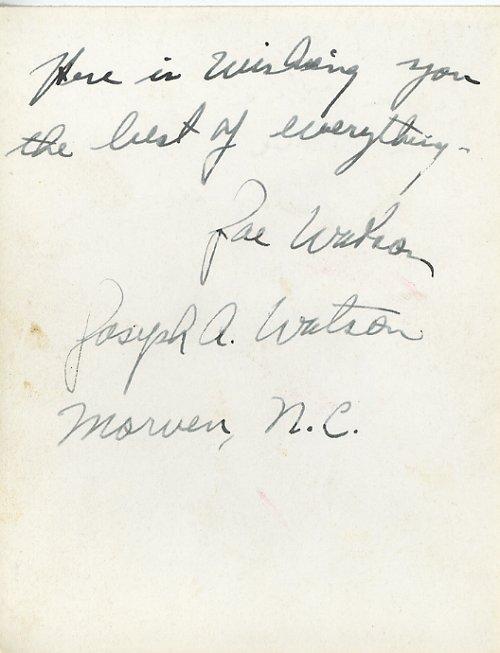 Here is wishing you
the best of everything.
Joe Watson
Joseph A. Watson
Morven, N.C.